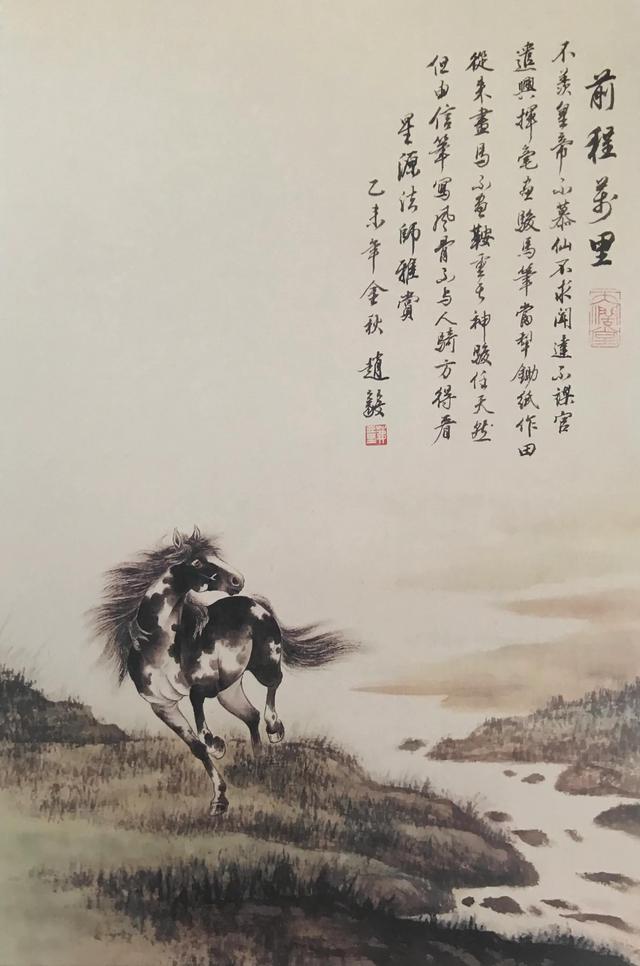 前程萬里
不羨皇帝不慕仙不求聞達不謀官
遣興揮毫画駿馬筆當犁鋤紙作田
從來畫馬不画鞍重其神駿任天然
但由信筆寫風骨不与人騎方得看
星源法師雅賞
乙未年金秋 趙毅